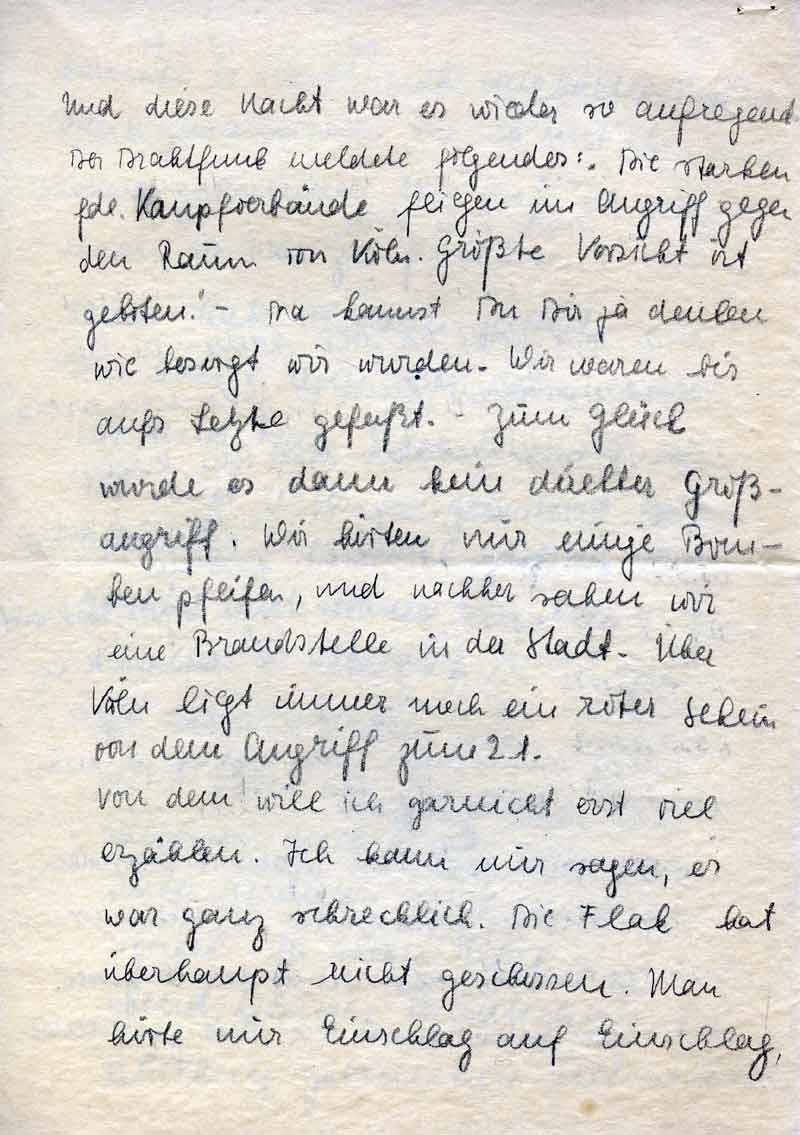 Und diese Nacht war es wieder so aufregend.
Der Drahtfunk meldete folgendes: „Die starken
fdl. Kampfverbände fliegen im Angriff gegen
den Raum von Köln. Größte Vorsicht ist
geboten." - Da kannst Du Dir ja denken
wie besorgt wir wurden. Wir waren bis
aufs Letzte gefaßt. - Zum Glück
wurde es dann kein direkter Groß-
angriff. Wir hörten nur einige Bom-
ben pfeifen, und nachher sahen wir
eine Brandstelle in der Stadt. Über
Köln ligt immer noch ein roter Schein
von dem Angriff zum 21.
Von dem will ich garnicht erst viel
erzählen. Ich kann nur sagen, es
war ganz schrecklich. Die Flak hat
überhaupt nicht geschossen. Man
hörte nur Einschlag auf Einschlag,